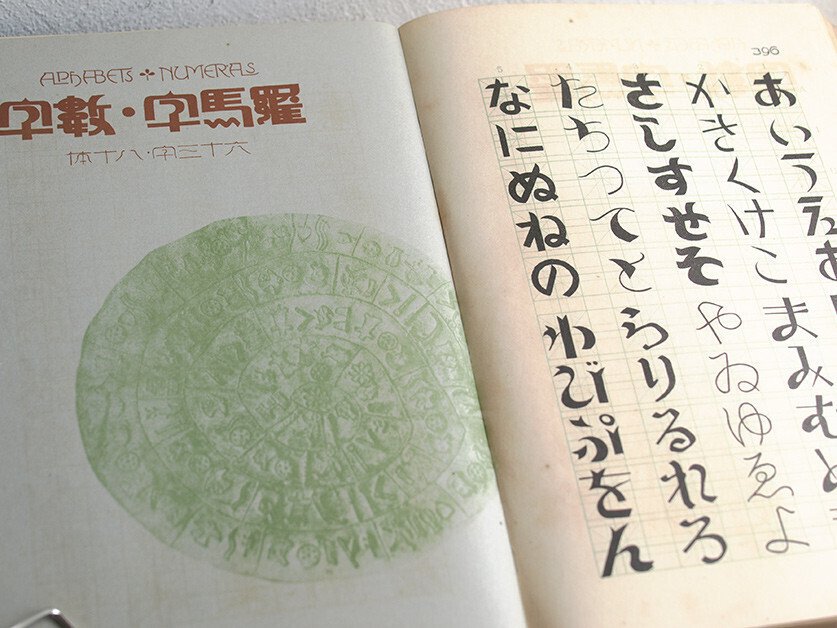 ALPHABETS ✢ NUMERALS
羅馬字・數字
六十三字・八十体
396
あいうえお
かきくけこまみむめ
さしすせそやゐゆゑよ
たちつてとらりるれろ
なにぬねのわびぷをん